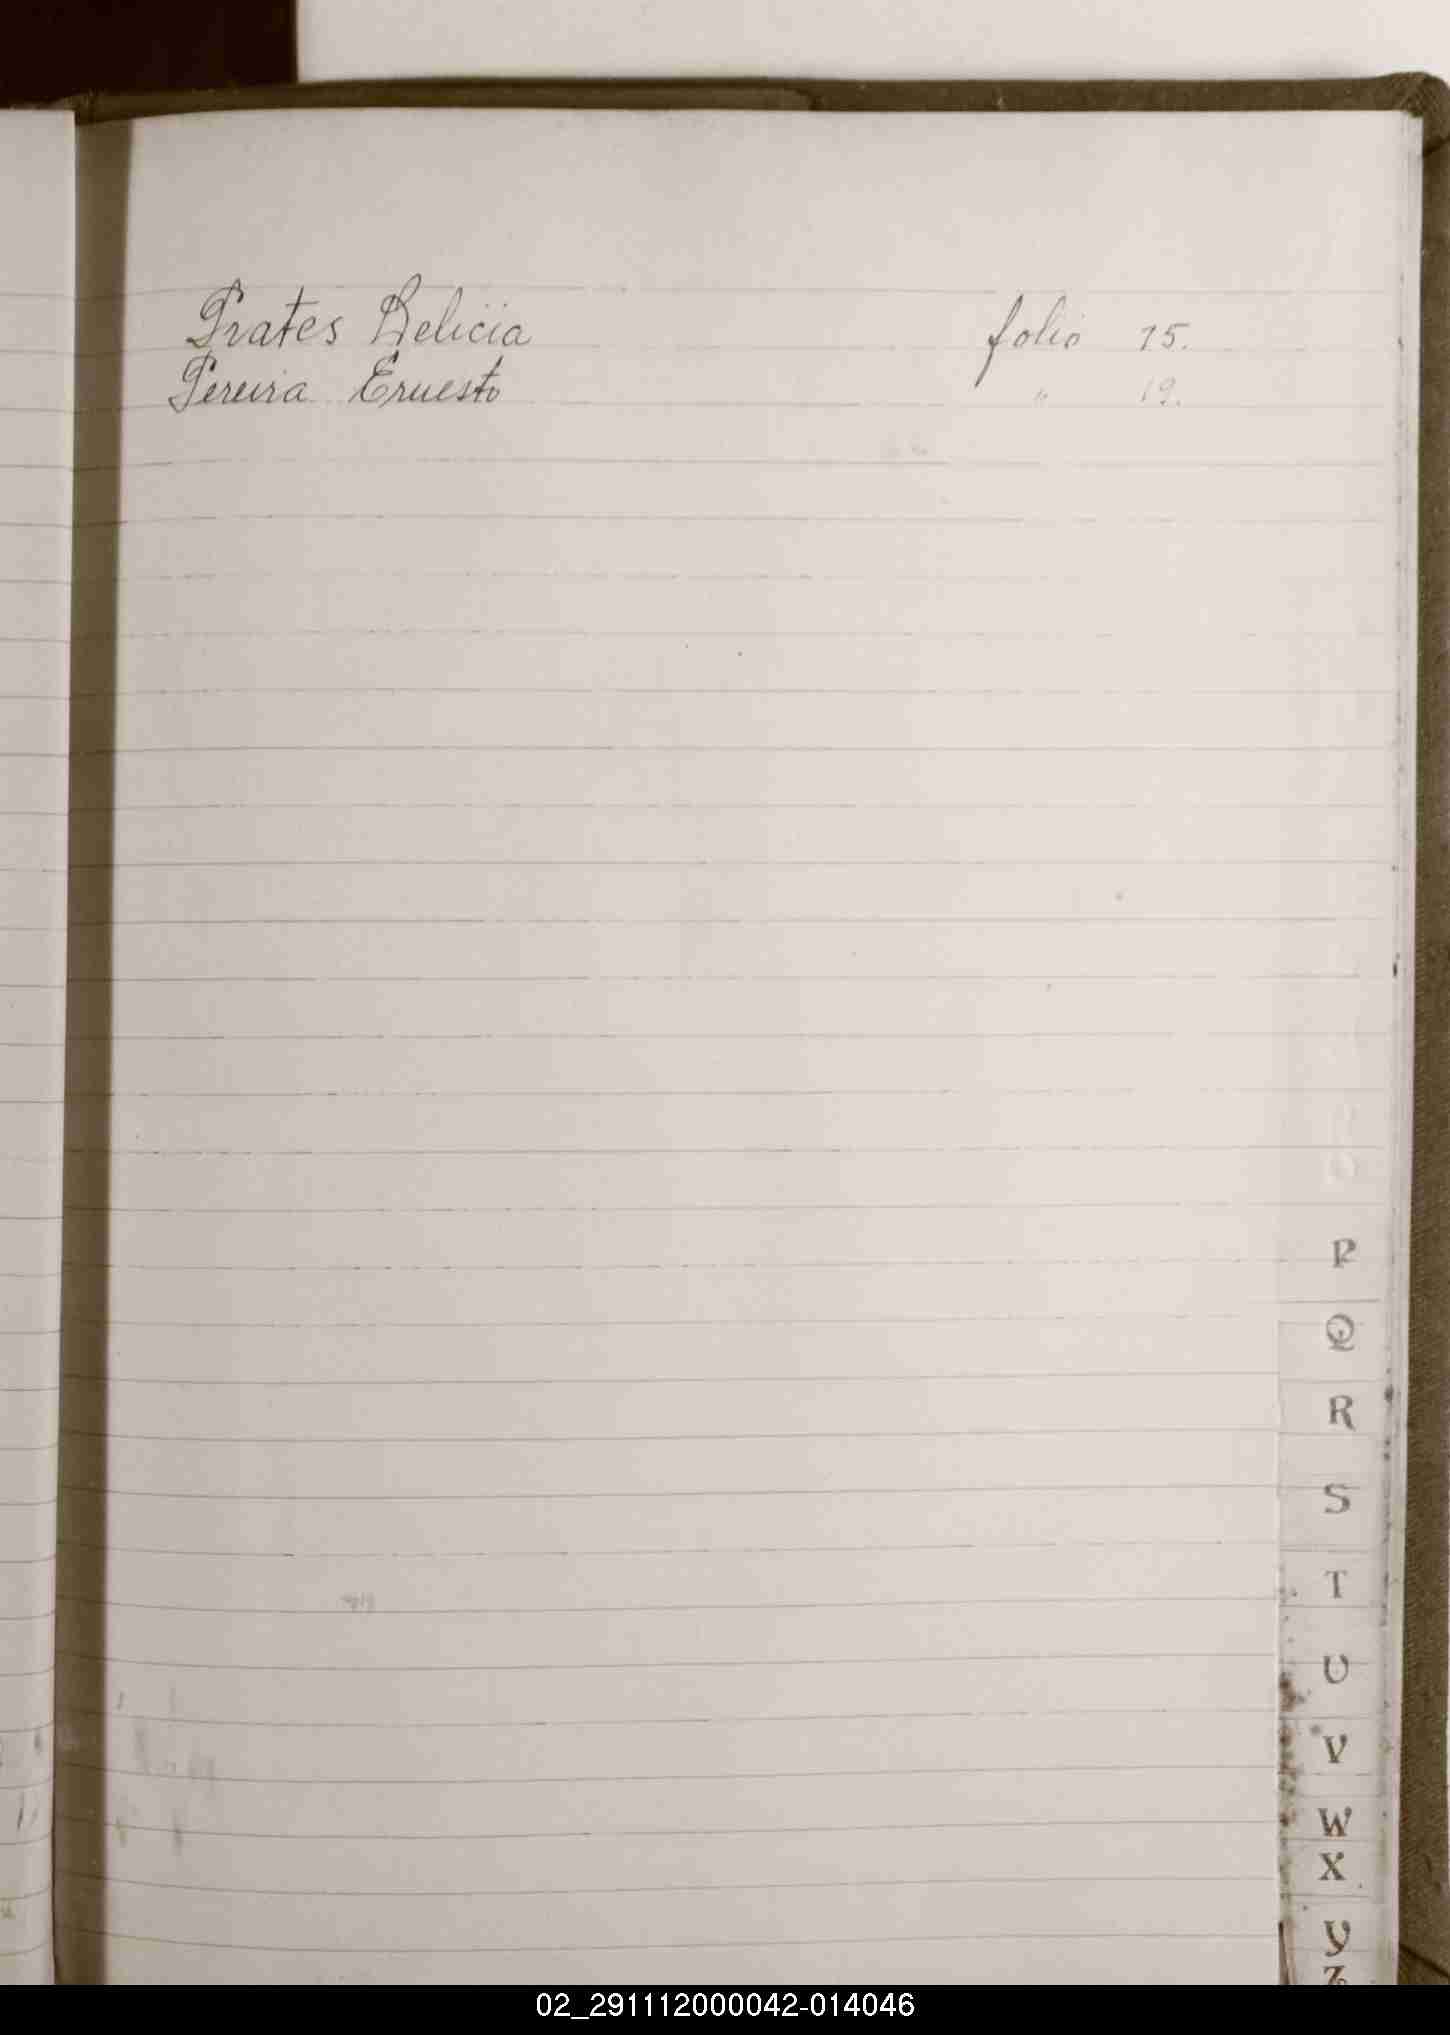 Prates Delicia folio 15.
Pereira Ernesto " 19.
P
Q
R
S
T
U
V
W
X
Y
Z
02_291112000042-014046